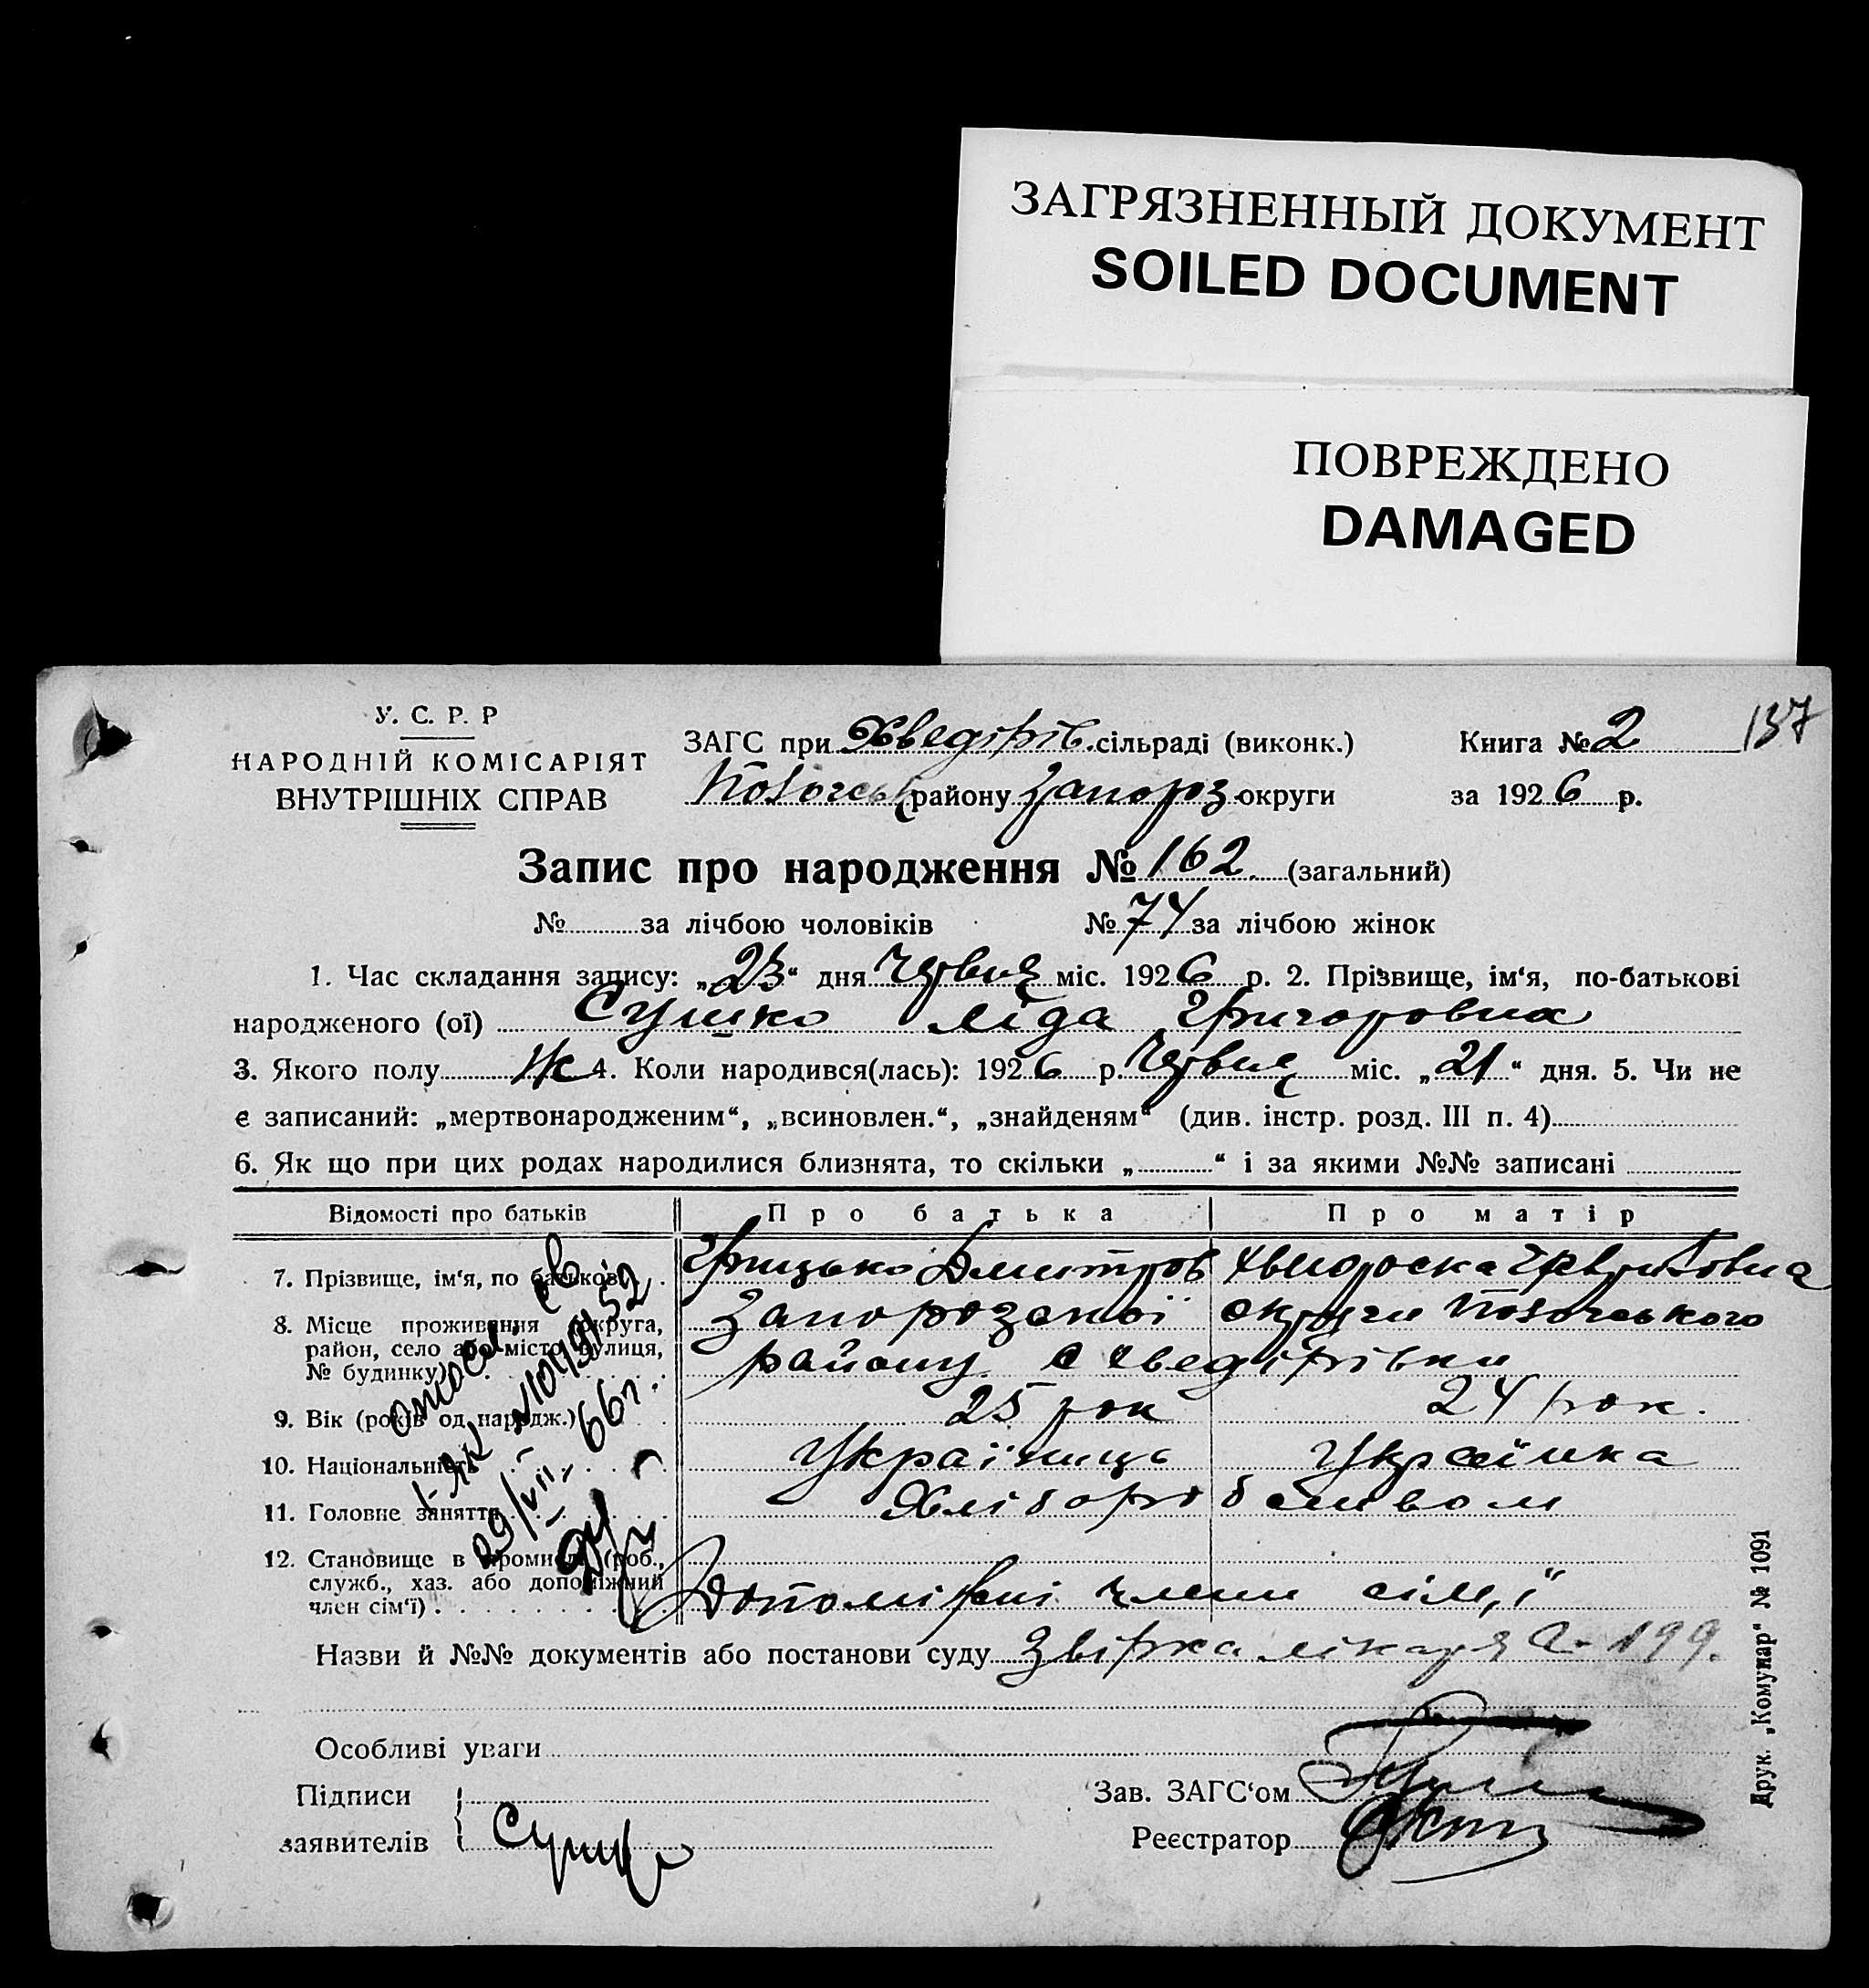 ЗАГРЯЗНЕННЫЙ ДОКУМЕНТ
SOILED DOCUMENT
ПОВРЕЖДЕНО
DAMAGED
У. С. Р. Р
НАРОДНІЙ КОМІСАРІЯТ
ВНУТРІШНІХ СПРАВ
ЗАГС при Хведірів. сільраді (виконк.)
району Запороз округи
Книга № 2
137
за 1926 р.
Запис про народження № 162. (загальний)
№ за лічбою чоловіків № 74 за лічбою жінок
1. Час складання запису: „23“ дня Червня міс. 1926 р. 2. Прізвище, ім‘я, по-батькові
народженого (ої) Сушко Ліда Григоровна
3. Якого полу ж 4. Коли народився(лась): 1926 р. Червня міс. „21“ дня. 5. Чи не
є записаний: „мертвонародженим“, „всиновлен.“, „знайденям“ (див. інстр. розд. III п. 4)
6. Як що при цих родах народилися близнята, то скільки „ “ і за якими №№ записані
Відомості про батьків Про батька Про матір
7. Прізвище, ім‘я, по батькові Грицько Дмитров
8. Місце проживання (округа, район, село або місто, вулиця, № будинку) Запорозської округи
району с Хведірівки
9. Вік (років од народж.) 25 рок 24 рок.
10. Національність Українець Українка
11. Головне заняття Хліборобством
12. Становище в промислі (роб., служб., хаз. або допоміжний член сім‘ї) Допоміжні члени сім,ї
Назви й №№ документів або постанови суду Звірка лікаря 199.
Особливі уваги
Підписи
заявителів Сушко
Зав. ЗАГС‘ом
Реєстратор
Друк. „Комунар“ № 1091